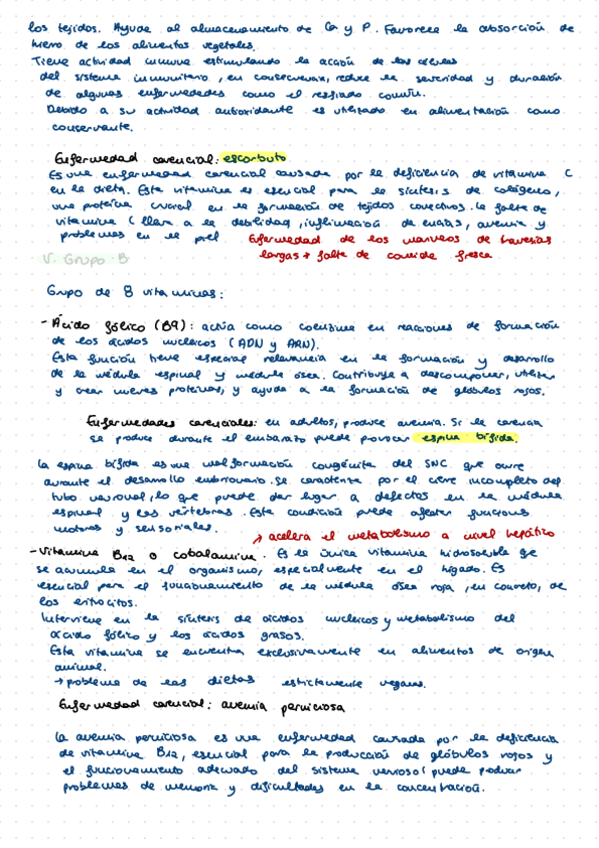 los tejidos. Ayuda al almacenamiento de Ca y P. Favorece la absorción de
hierro de los alimentos vegetales.
Tiene actividad inmune estimulando la acción de las células
del sistema inmunitario, en consecuencia, reduce la severidad y duración
de algunas enfermedades como el resfriado común.
Debido a su actividad antioxidante es utilizado en alimentación como
conservante.
Enfermedad carencial: escorbuto
Es una enfermedad carencial causada por la deficiencia de vitamina C
en la dieta. Esta vitamina es esencial para la síntesis de colágeno,
una proteína crucial en la formación de tejidos conectivos. La falta de
vitamina C lleva a la debilidad, inflamación de encías, anemia y
problemas en la piel Enfermedad de los marineros de travesías
largas + falta de comida fresca
V. Grupo B
Grupo de 8 vitaminas:
- Ácido fólico (B9): actúa como coenzima en reacciones de formación
de los ácidos nucleicos (ADN y ARN).
Esta función tiene especial relevancia en la formación y desarrollo
de la médula espinal y médula ósea. Contribuye a descomponer, utilizar
y crear nuevas proteínas, y ayuda a la formación de glóbulos rojos.
Enfermedades carenciales: en adultos, produce anemia. Si la carencia
se produce durante el embarazo puede provocar espina bífida.
La espina bífida es una malformación congénita del SNC que ocurre
durante el desarrollo embrionario. Se caracteriza por el cierre incompleto del
tubo neuronal, lo que puede dar lugar a defectos en la médula
espinal y las vértebras. Esta condición puede afectar funciones
motoras y sensoriales.
→ acelera el metabolismo a nivel hepático
- Vitamina B12 o cobalamina. Es la única vitamina hidrosoluble que
se acumula en el organismo, especialmente en el hígado. Es
esencial para el funcionamiento de la médula ósea roja, en concreto, de
los eritrocitos.
Interviene en la síntesis de ácidos nucleicos y metabolismo del
ácido fólico y los ácidos grasos.
Esta vitamina se encuentra exclusivamente en alimentos de origen
animal.
→ problema de las dietas estrictamente veganas.
Enfermedad carencial: anemia perniciosa
La anemia perniciosa es una enfermedad causada por la deficiencia
de vitamina B12, esencial para la producción de glóbulos rojos y
el funcionamiento adecuado del sistema nervioso (puede producir
problemas de memoria y dificultades en la concentración.